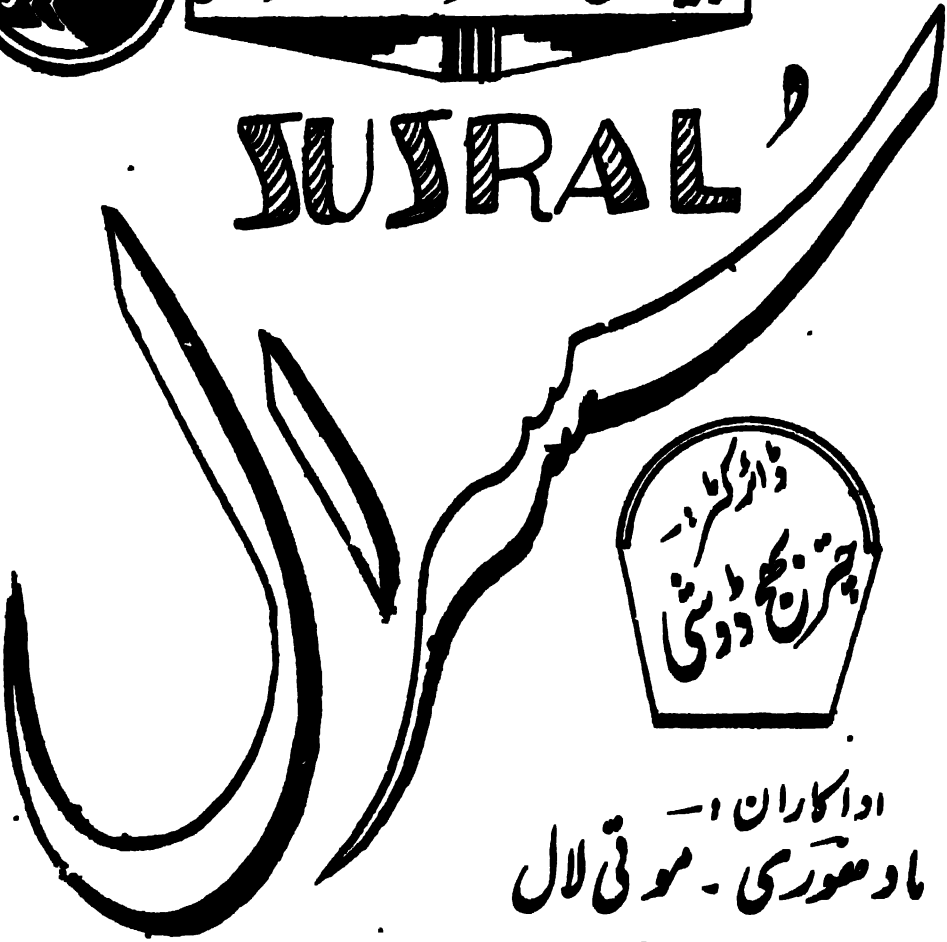 SUSRAL'
سسرال
ڈائرکٹر:۔
چتر بھج ڈوشی
اداکاران :۔
مادھوری ۔ موتی لال